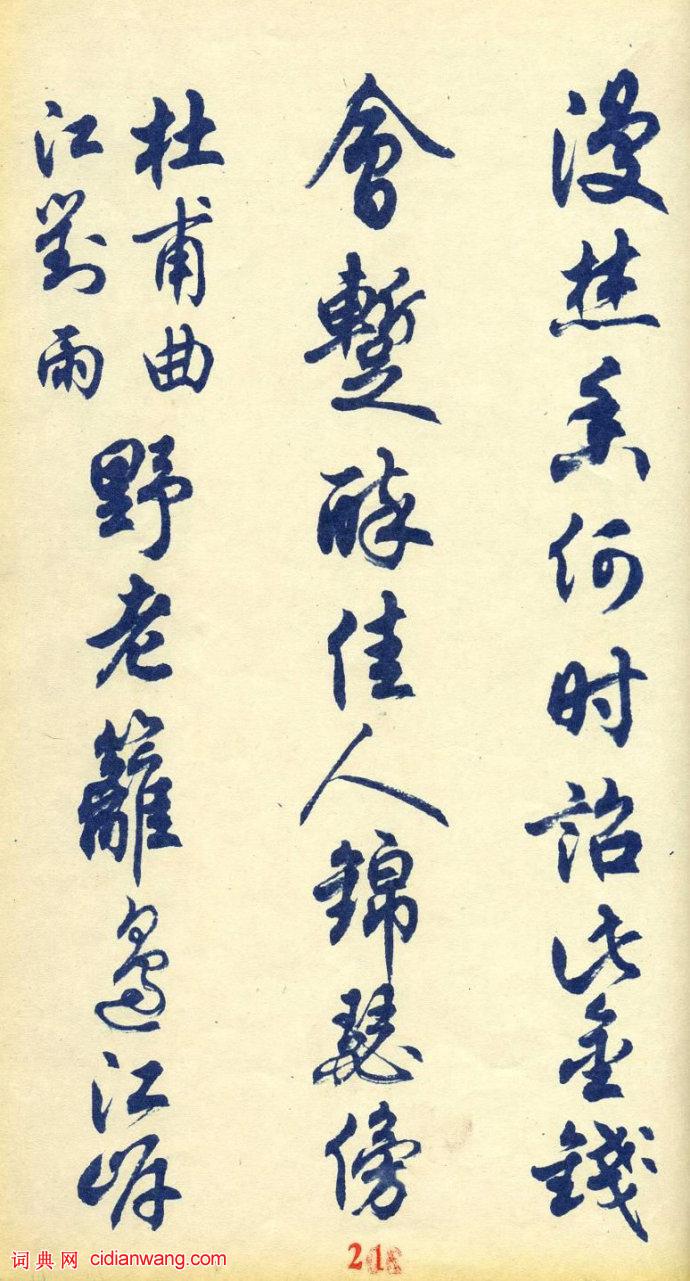 漫焚香何时詔此金錢
會蹔醉佳人錦瑟傍
杜甫曲
江對雨
野老籬邊江岸
词典网 cidianwang.com